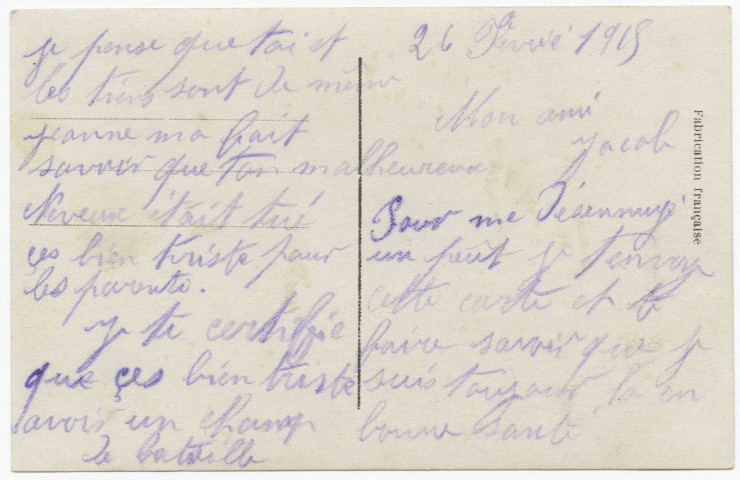 26 Fevrié 1915
Mon ami
Jacob
Pour me Désennuyé
un peut je t'envoy
cette carte et te
faire savoir que je
suis toujour la en
bonne santé
je pense que toi et
les tiens sont de même
jeanne ma fait
savoir que ton malheureux
Neveux était tué
çes bien triste pour
les parents.
je te certifie
que çes bien triste
avoir un champ
de bataille
Fabrication française